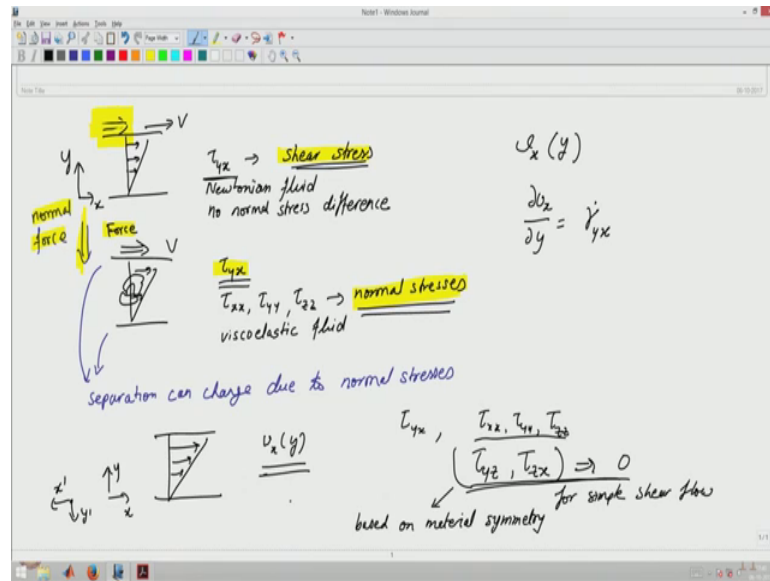 Note1 - Windows Journal
File Edit View Insert Actions Tools Help
Page Width
B I
Note Title
V
y
x
τyx → shear stress
Newtonian fluid
no normal stress difference
vx (y)
∂vx/∂y = γ̇yx
normal force
Force
V
τyx
τxx, τyy, τzz → normal stresses
viscoelastic fluid
separation can change due to normal stresses
x' y x y'
vx(y)
τyx, τxx, τyy, τzz
(τyz, τzx) ⇒ 0
for simple shear flow
based on material symmetry
1/1
1